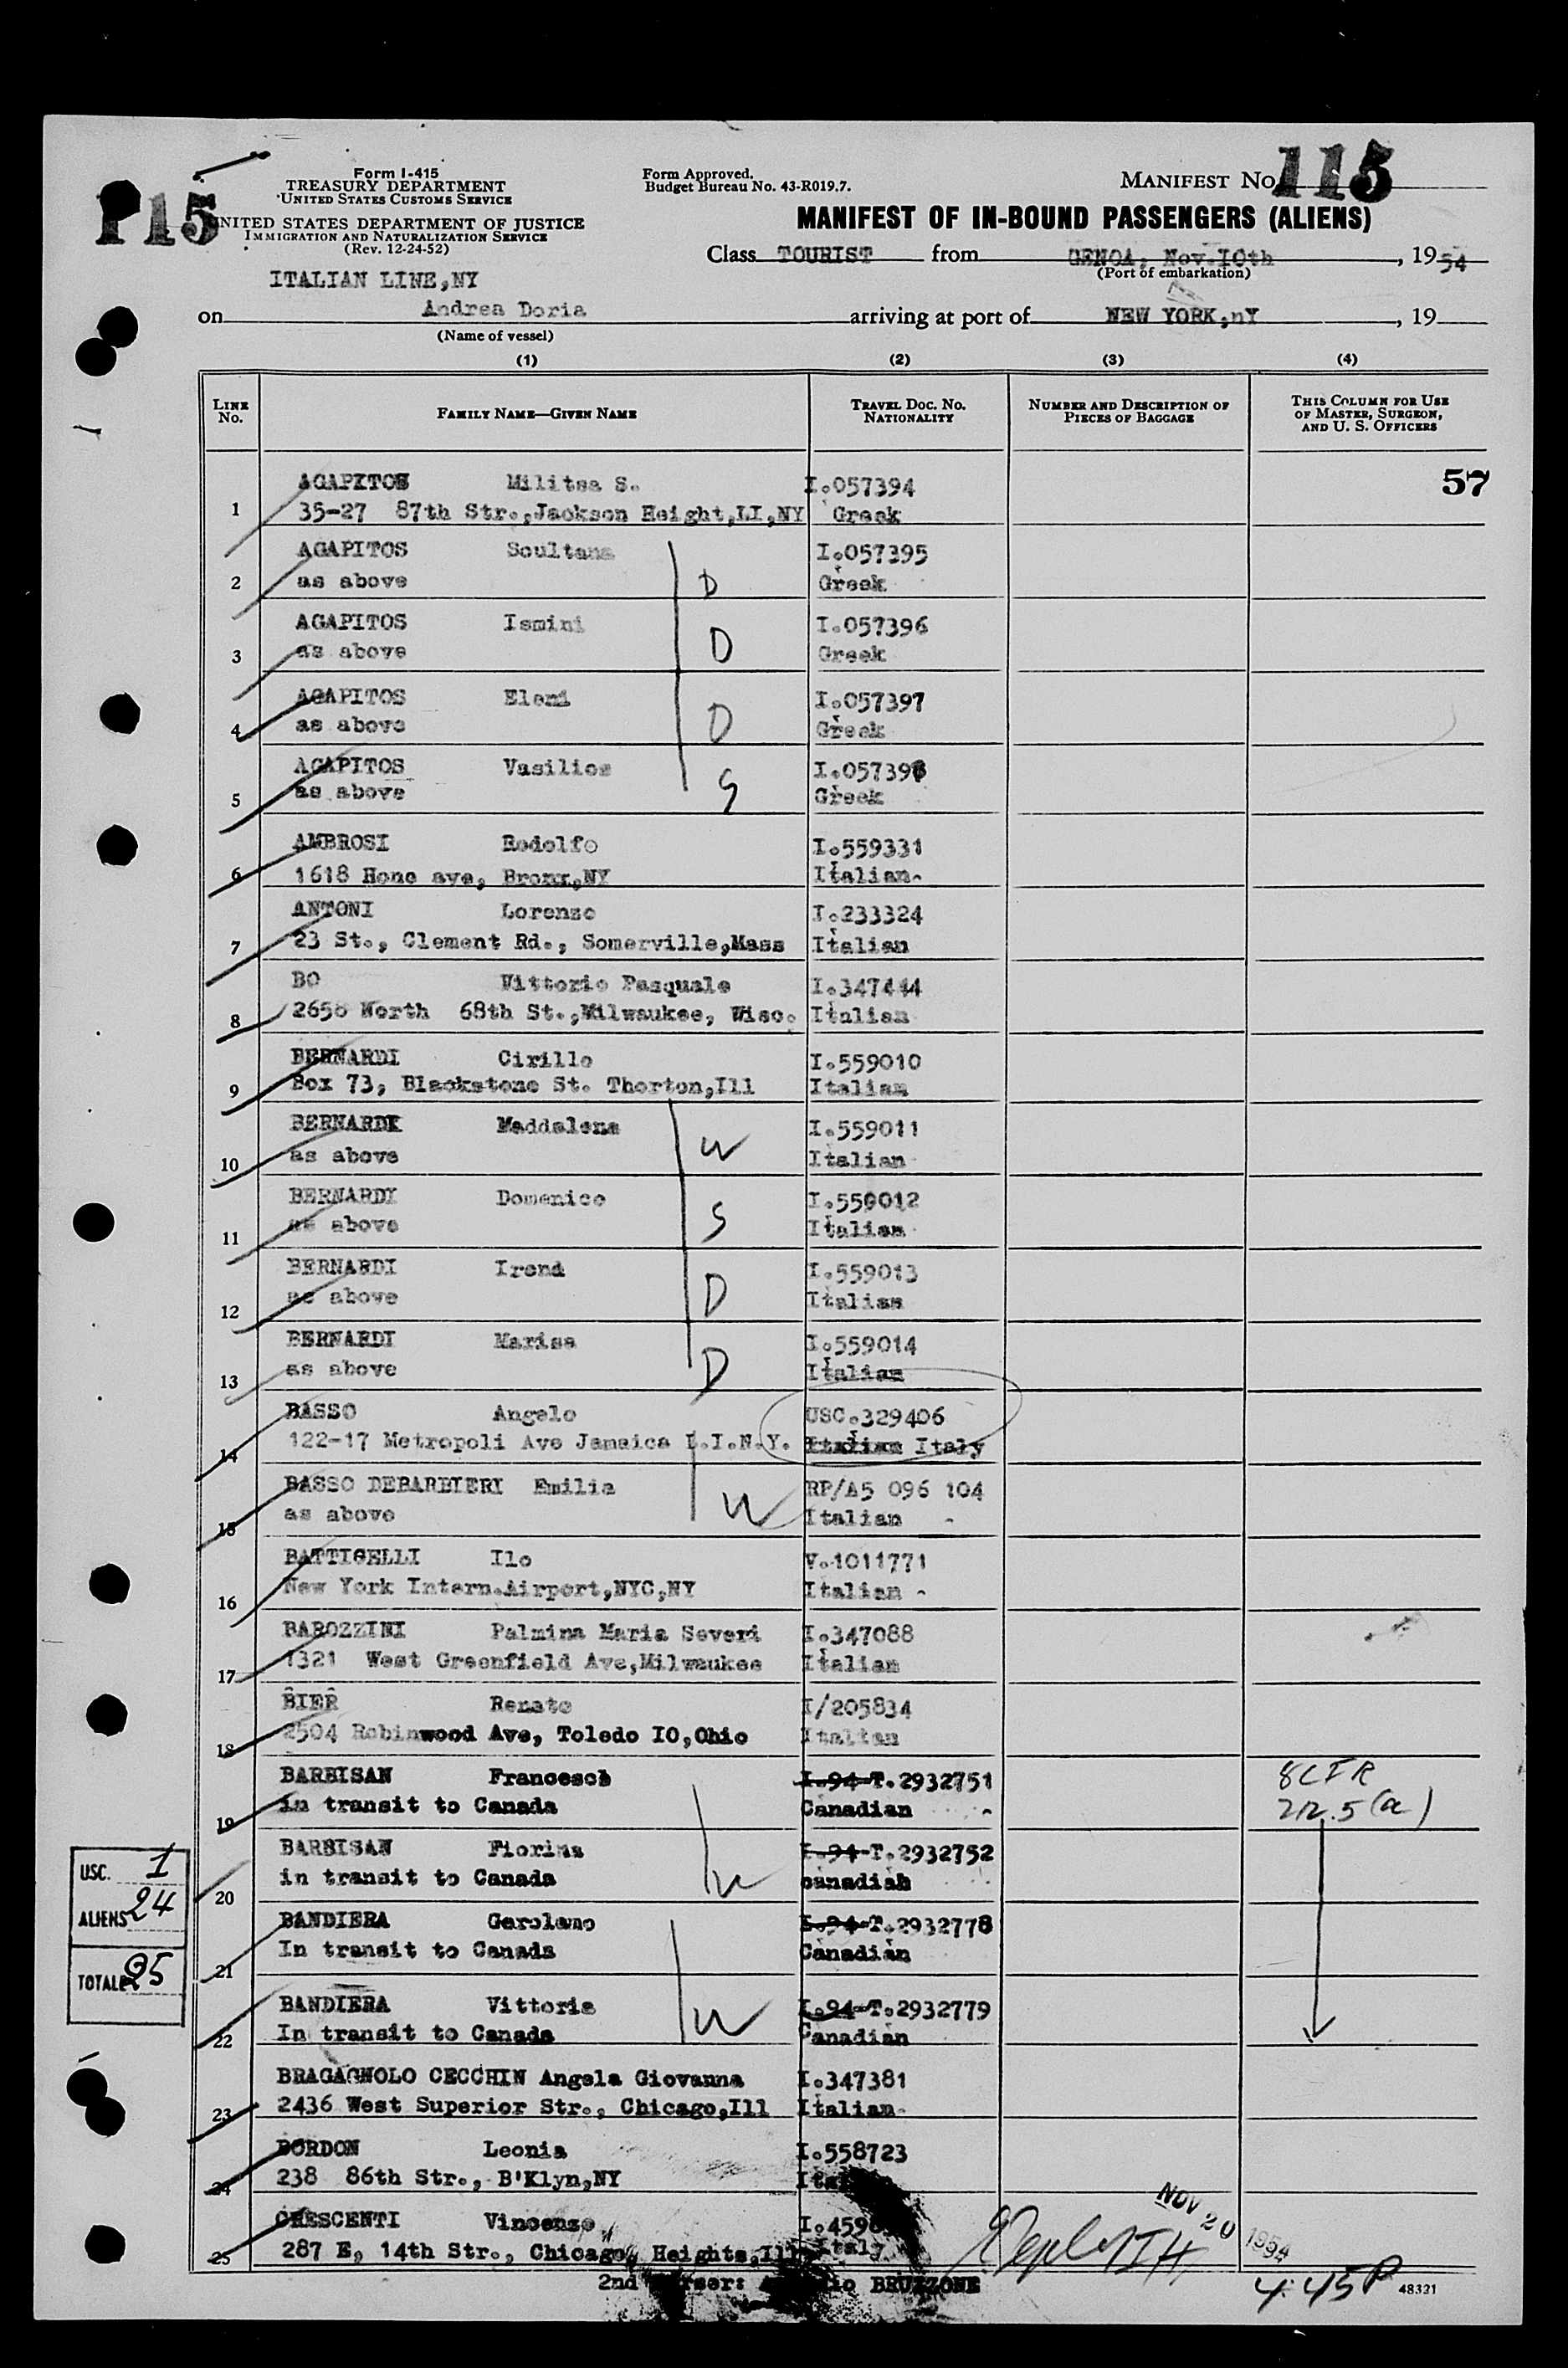 115
P15
Form I-415
TREASURY DEPARTMENT
UNITED STATES CUSTOMS SERVICE
UNITED STATES DEPARTMENT OF JUSTICE
IMMIGRATION AND NATURALIZATION SERVICE
(Rev. 12-24-52)
Form Approved.
Budget Bureau No. 43-R019.7.
MANIFEST NO.
MANIFEST OF IN-BOUND PASSENGERS (ALIENS)
Class TOURIST from GENOA, Nov.10th, 1954
(Port of embarkation)
ITALIAN LINE,NY
on Andrea Doria arriving at port of NEW YORK,nY, 19
(Name of vessel)
(1) (2) (3) (4)
LINE NO. FAMILY NAME—GIVEN NAME TRAVEL DOC. NO. NATIONALITY NUMBER AND DESCRIPTION OF PIECES OF BAGGAGE THIS COLUMN FOR USE OF MASTER, SURGEON, AND U. S. OFFICERS
57
1 AGAPITOS Militsa S. I.057394
35-27 87th Str.,Jackson Height,LI,NY Greek
2 AGAPITOS Soultana I.057395
as above D Greek
3 AGAPITOS Ismini I.057396
as above D Greek
4 AGAPITOS Eleni I.057397
as above D Greek
5 AGAPITOS Vasilios I.057398
as above S Greek
6 AMBROSI Rodolfo I.559331
1618 Hone ave, Bronx,NY Italian
7 ANTONI Lorenzo I.233324
23 St., Clement Rd., Somerville,Mass Italian
8 BO Vittorio Pasquale I.347444
2658 North 68th St.,Milwaukee, Wisc. Italian
9 BERNARDI Cirillo I.559010
Box 73, Blackstone St. Thorton,Ill Italian
10 BERNARDI Maddalena I.559011
as above W Italian
11 BERNARDI Domenico I.559012
as above S Italian
12 BERNARDI Irena I.559013
as above D Italian
13 BERNARDI Marisa I.559014
as above D Italian
14 BASSO Angelo USC.329406
122-17 Metropoli Ave Jamaica L.I.N.Y. Italian Italy
15 BASSO DEBARBIERI Emilia RP/A5 096 104
as above W Italian
16 BATTIGELLI Ilo V.1011771
New York Intern.Airport,NYC,NY Italian
17 BAROZZINI Palmina Maria Severi I.347088
1321 West Greenfield Ave,Milwaukee Italian
18 BIER Renato I/205834
2504 Robinwood Ave, Toledo IO,Ohio Italian
19 BARBISAN Francesco I.94-T.2932751 8CFR
in transit to Canada Canadian 212.5(a)
20 BARBISAN Fiorina I.94-T.2932752
in transit to Canada W canadian
21 BANDIERA Gerolamo I.94-T.2932778
In transit to Canada Canadian
22 BANDIERA Vittoria I.94-T.2932779
In transit to Canada W Canadian
23 BRAGAGNOLO CECCHIN Angela Giovanna I.347381
2436 West Superior Str., Chicago,Ill Italian
24 BORDON Leonia I.558723
238 86th Str., B'Klyn,NY
25 CRESCENTI Vincenzo
287 E, 14th Str., Chicago, Heights,Ill Italy
USC. 1
ALIENS 24
TOTAL 25
2nd BRUZZONE
NOV 20 1954
4:45P
48321